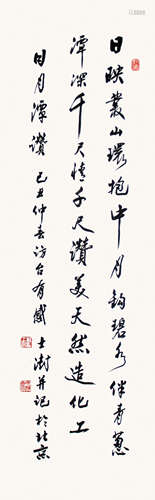 日映叢山環抱中月鈎碧水伴青蔥
潭深千尺情千尺讚美天然造化工
日月潭讚 己丑仲春訪台有感 士澍并記於北京